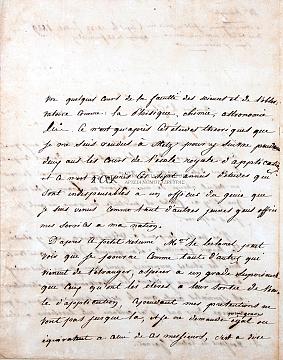 vre quelques cours de la faculté des sciences et de l'obser
vatoire comme: la Phisique, chimie, astronomie
&c. Ce n'est qu'après ces études théoriques que
je me suis rendu à Metz pour y suivre pendant
deux ans les cours de l'école royale d'application
et ce n'est qu'après ces sept années d'études qui
sont indispensables à un officier du génie que
je suis venu comme tant d'autres jeunes gens offrir
mes services à ma nation.
D'après ce petit résumé Mr. de Leland peut
voir que je pourrai comme tant d'autres qui
viennent de l'étranger, aspirer à un grade supérieur
que ceux qu'ont les élèves à leur sortie de l'éco
le d'application. Cependant mes prétentions ne
vont pas jusque là, et je ne demande égal ou
équivalent à celui de ces messieurs, c'est à dire